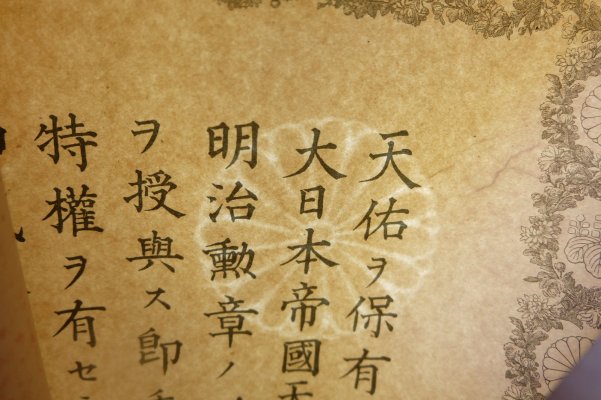 天佑ヲ保有
大日本帝國天
明治勳章ノ
ヲ授與ス即
特權ヲ有セ